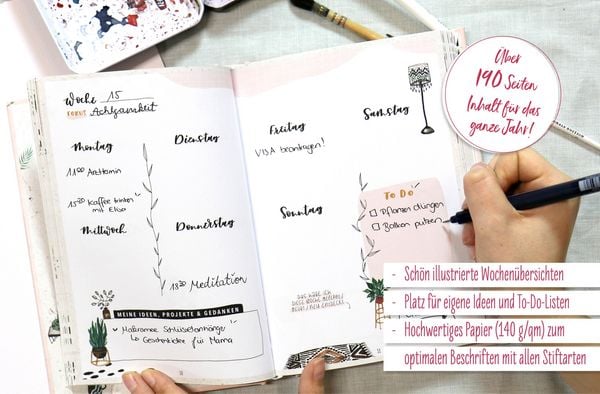 Woche 15
FOKUS Achtsamkeit
Montag
11:00 Arzttermin
15:30 Kaffee trinken
mit Elisa
Mittwoch
Dienstag
Donnerstag
18:30 Meditation
MEINE IDEEN, PROJEKTE & GEDANKEN
Makramee Schlüsselanhänger
↳ Geschenkidee für Mama
Freitag
VISA beantragen!
Samstag
Sonntag
DAS HABE ICH
DIESE WOCHE
To Do
Pflanzen düngen
Balkon putzen
Über
190 Seiten
Inhalt für das
ganze Jahr!
- Schön illustrierte Wochenübersichten
- Platz für eigene Ideen und To-Do-Listen
- Hochwertiges Papier (140 g/qm) zum
optimalen Beschriften mit allen Stiftarten